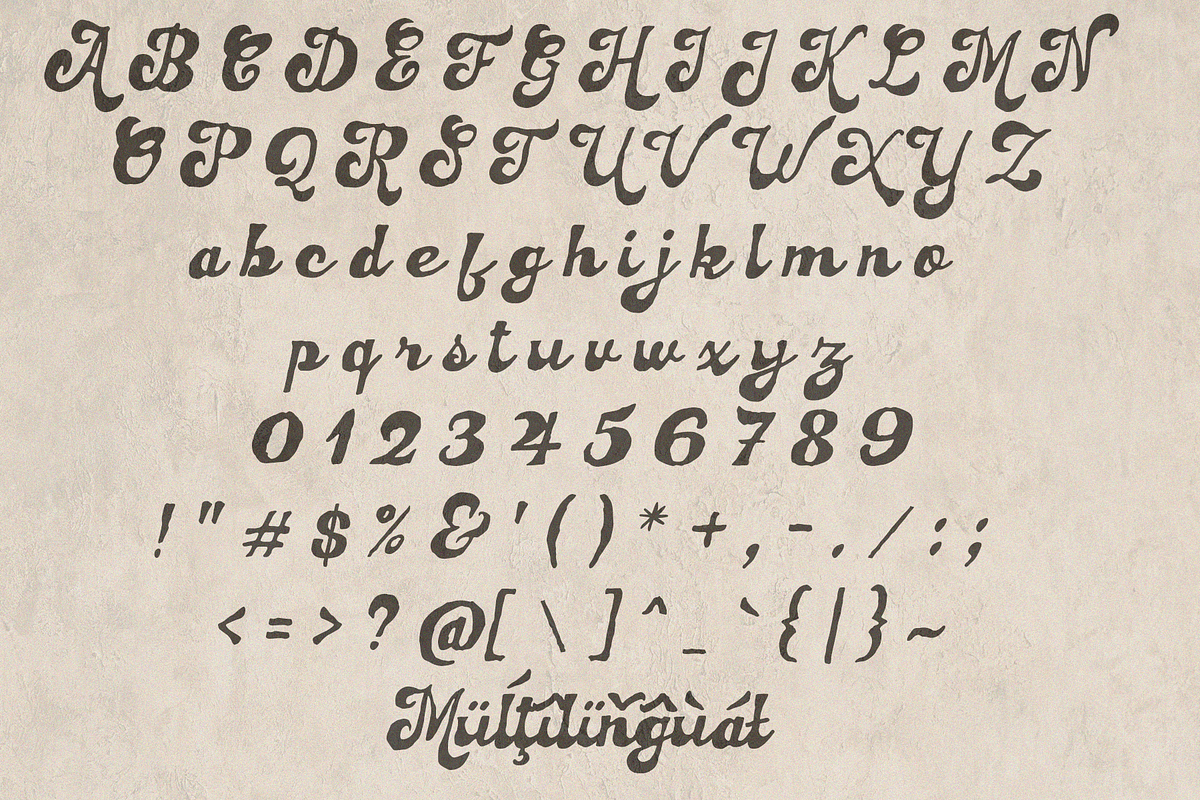 A B C D E F G H I J K L M N
O P Q R S T U V W X Y Z
a b c d e f g h i j k l m n o
p q r s t u v w x y z
0 1 2 3 4 5 6 7 8 9
! " # $ % & ' ( ) * + , - . / : ;
< = > ? @ [ \ ] ^ _ ` { | } ~
Müĺţîlïňĝùáł